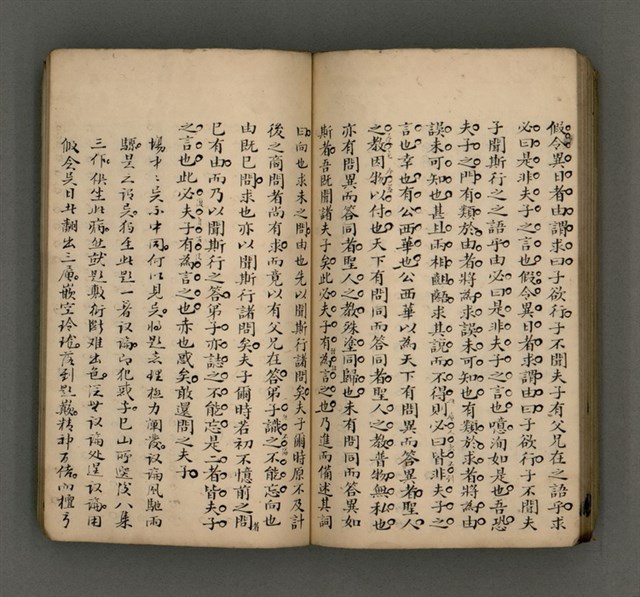 假令異日者由謂求曰子欲行子不聞夫子有父兄在之語乎求
必曰是非夫子之言也假令異日者求謂由曰子欲行子不聞夫
子聞斯行之之語乎由必曰是非夫子之言也噫洵如是也吾恐
夫子之門有類於由者將為求誤未可知也有類於求者將為由
誤未可知也甚且兩相齟齬求其說而不得則必曰皆非夫子之
言也幸也有公西華也公西華以為天下有問異而答異者聖人
之教因物以付也天下有問同而答同者聖人之教普物無私也
亦有問異而答同者聖人之教殊塗同歸也未有問同而答異如
斯者吾既聞諸夫子矣此必夫子有為言之也乃進而備述其詞
曰向也求未之問由也先以聞斯行諸問矣夫子爾時原不及計
後之商問者尚有求而竟以有父兄在答弟子識之不能忘向也
由既已問求也亦以聞斯行諸問矣夫子爾時若初不憶前之問
已有由而乃以聞斯行之答弟子亦誌之不能忘是二者皆夫子
之言也此必夫子有為言之也赤也惑矣敢還問之夫子
場中不中同何以見矣極力闡發議論風馳雨
驟是之謂矣獨至此題一著議論即犯或子巳山所選後八集
三作俱生此病然就題敷衍斷難出色議論處還議論用
假令異日此翻出三層嵌空玲瓏落到題巔精神百倍而檀弓